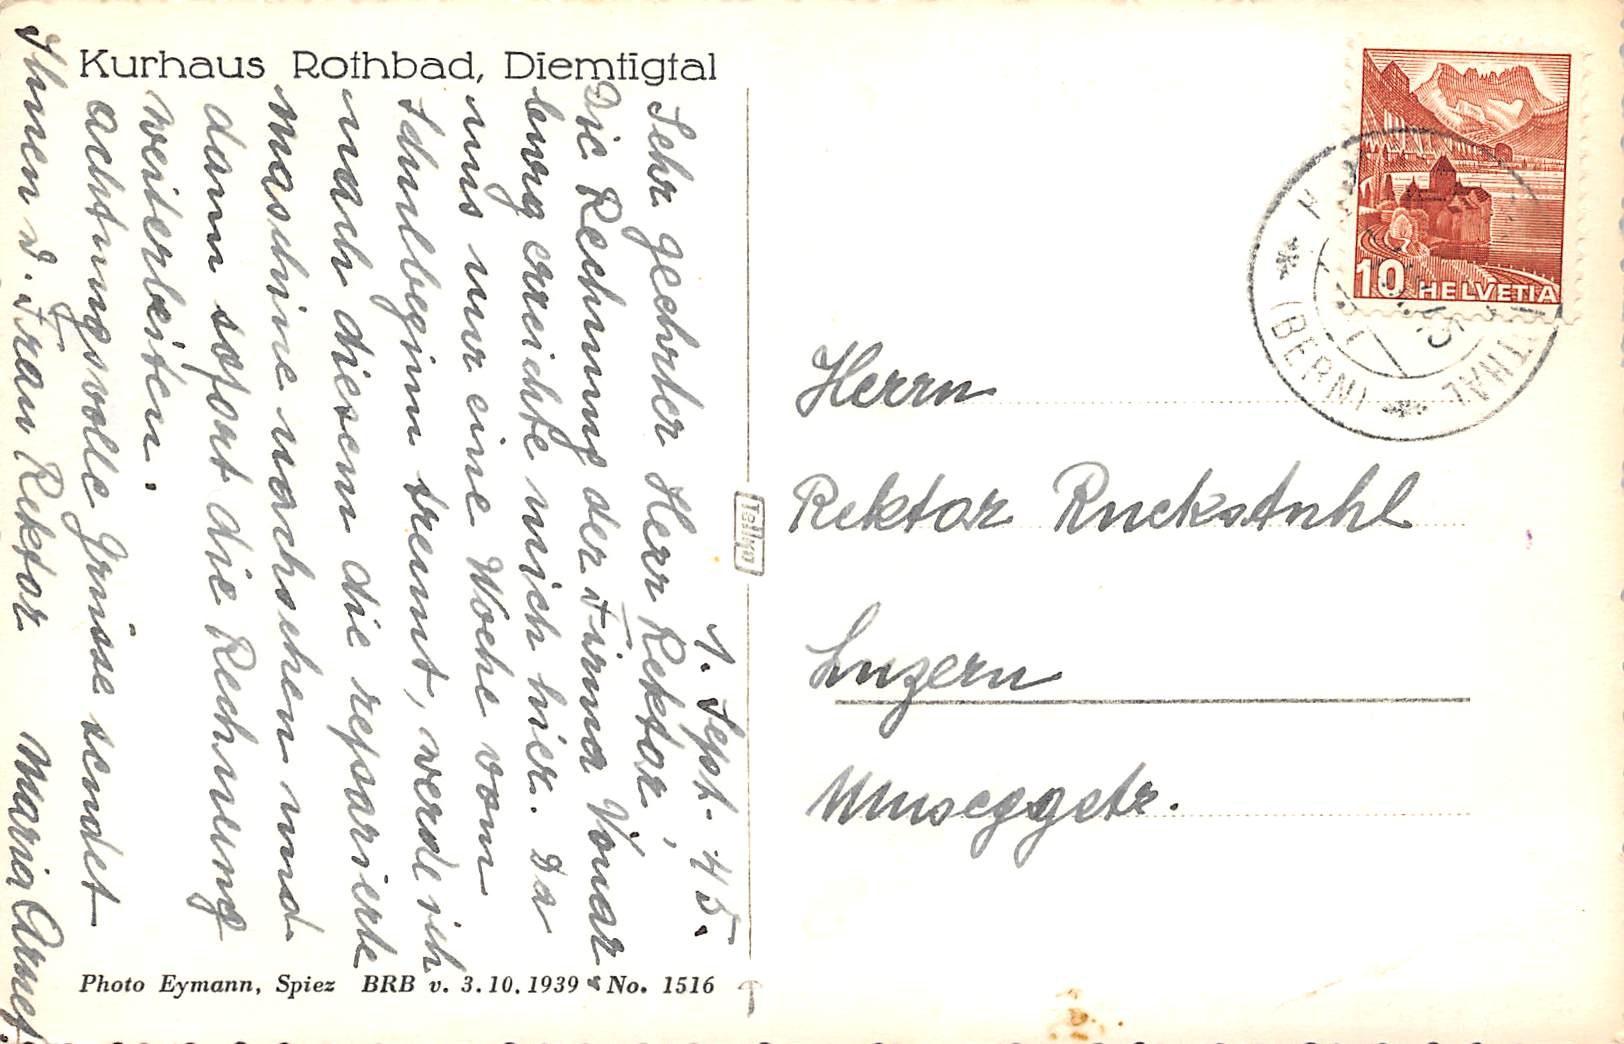 Kurhaus Rothbad, Diemtigtal
1. Sept. 45.
Sehr geehrter Herr Rektor,
Die Rechnung der Firma Vonar-
burg erreichte mich hier. Da
uns nur eine Woche vom
Schulbeginn trennt, werde ich
nach diesem die reparierte
Maschine nachsehen und
dann sofort die Rechnung
weiterleiten.
Achtungsvolle Grüsse sendet
Ihnen & Frau Rektor Maria Arnet
Photo Eymann, Spiez BRB v. 3.10.1939 No. 1516
10 HELVETIA
(BERN)
Herrn
Rektor Ruckstuhl
Luzern
Museggstr.